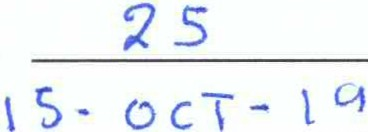 25
15-OCT-19